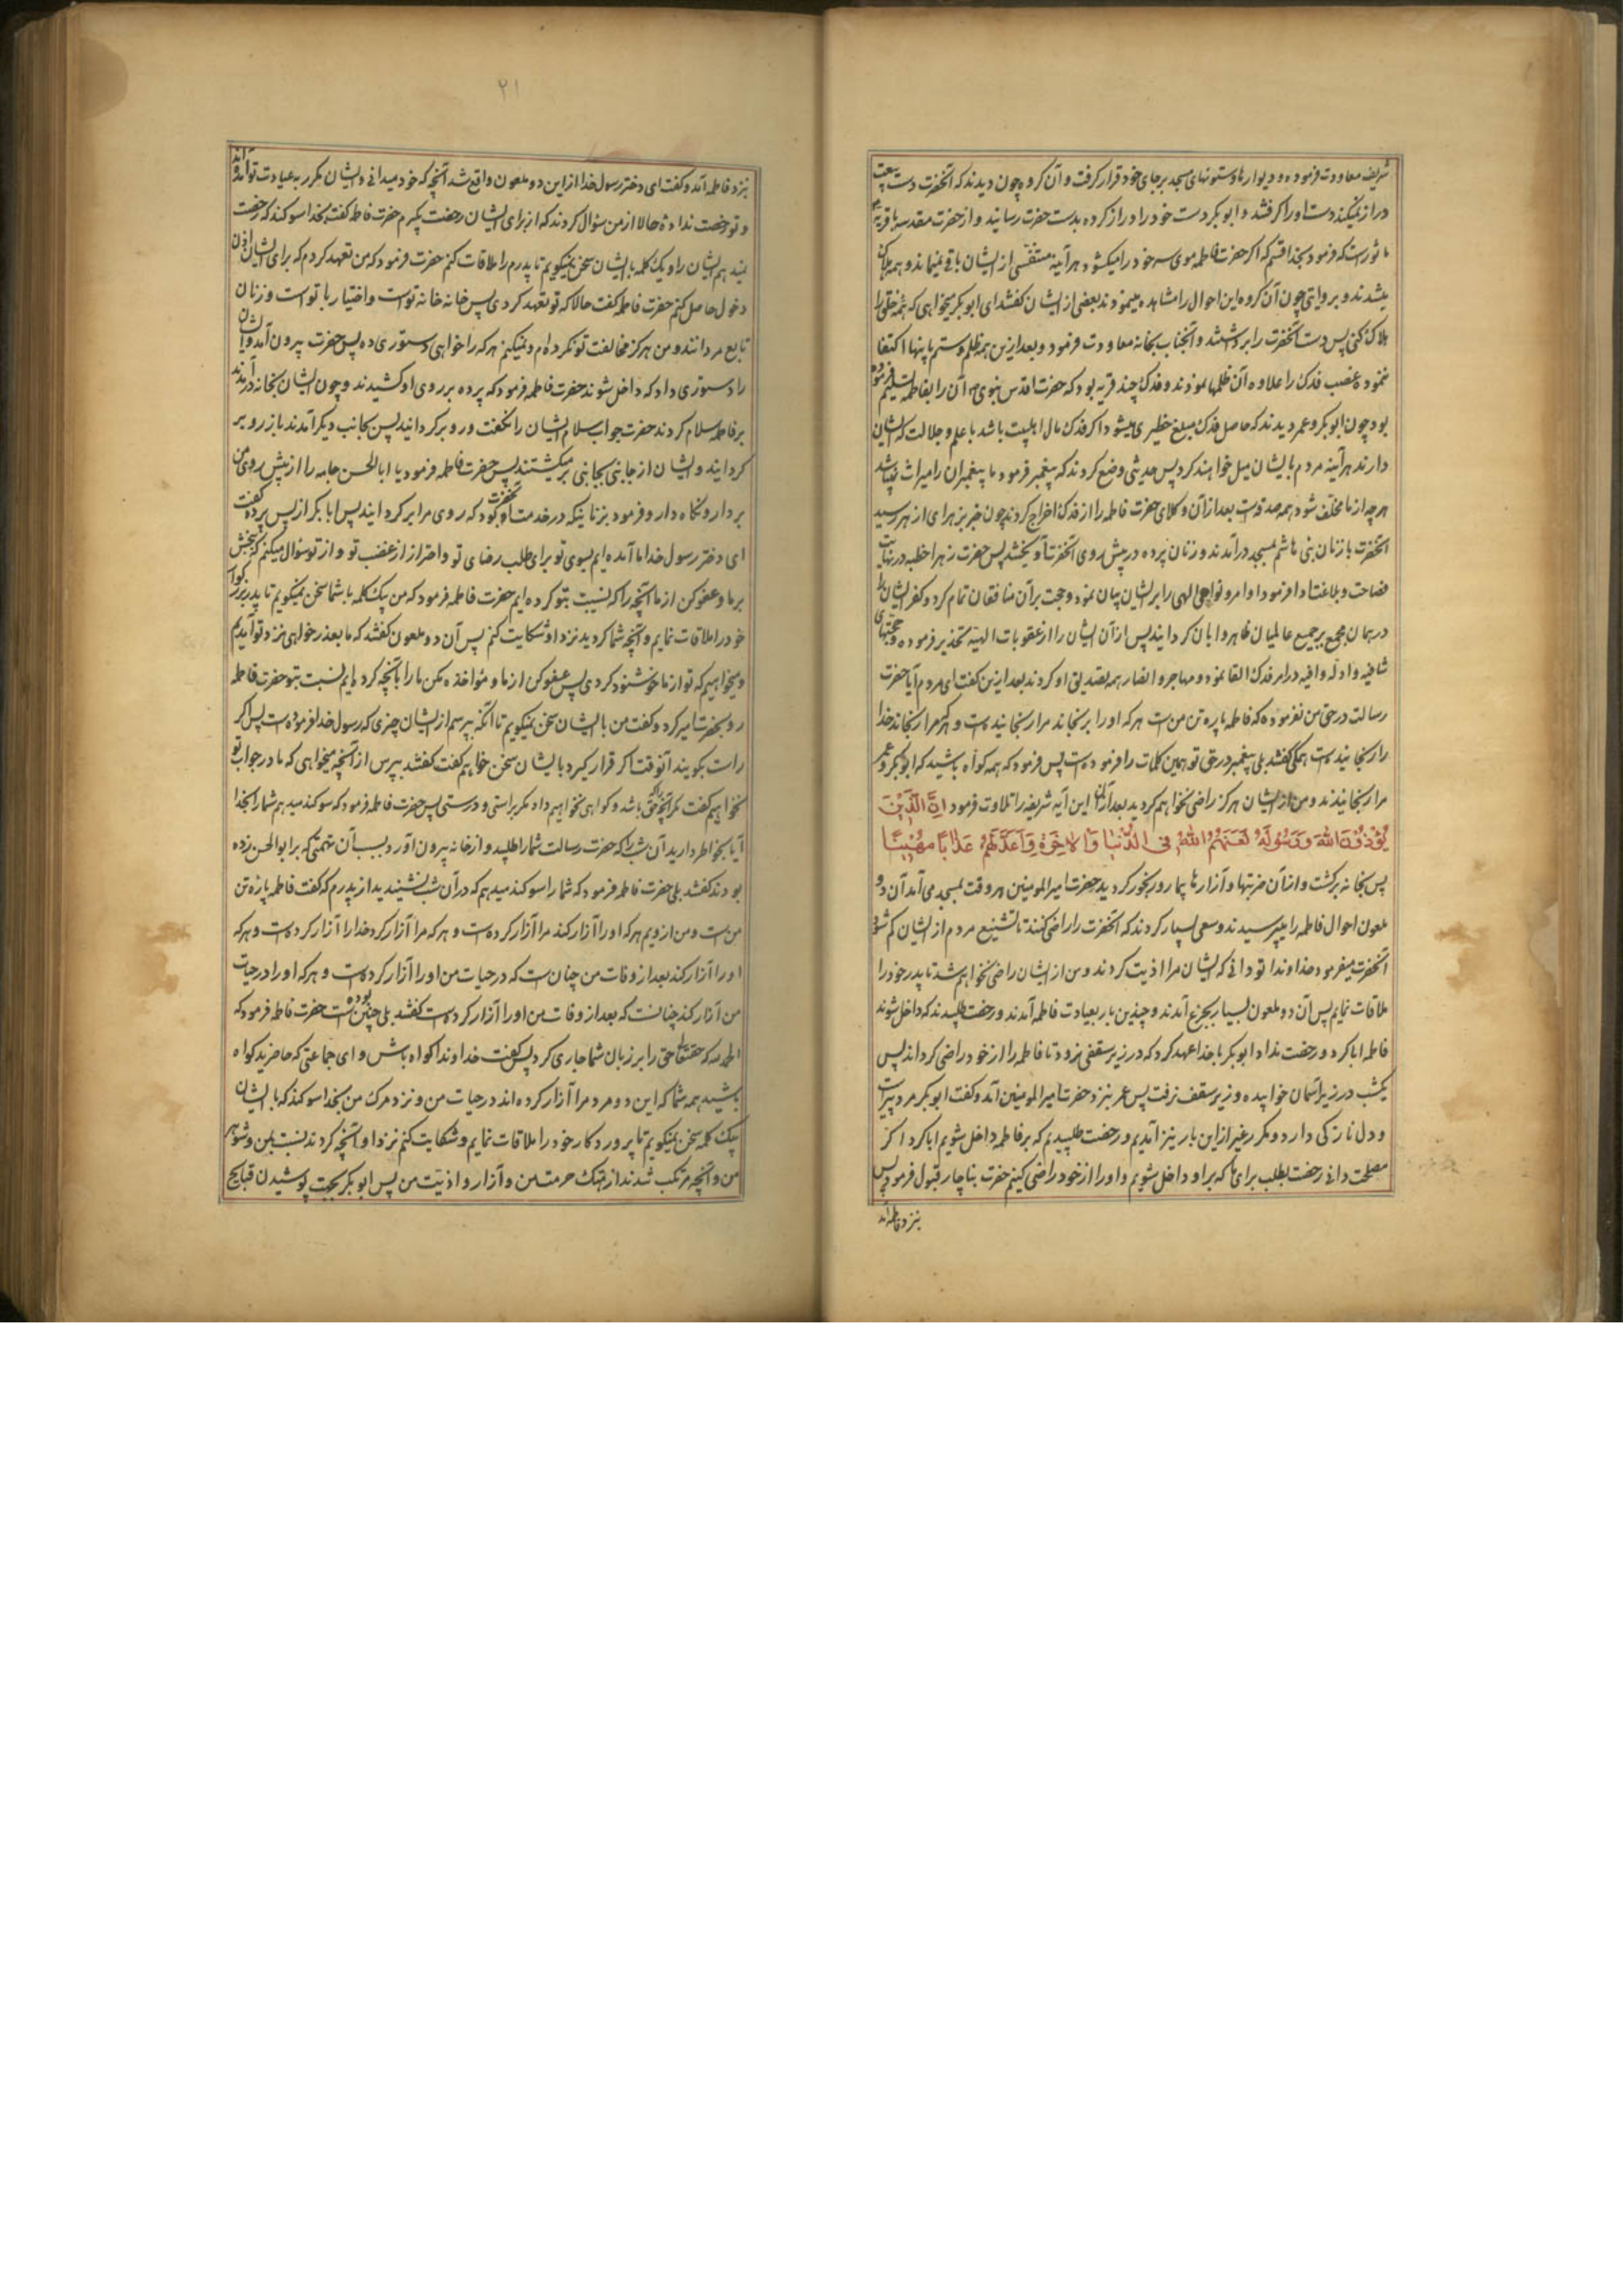 شریف معاودت فرموده و دیوارها و ستونهای مسجد برجای خود قرار گرفت و آن گروه چون دیدند که آنحضرت دست بیعت
دراز نمیکند دست او را گرفتند و ابوبکر دست خود را دراز کرده بدست حضرت رسانید و از حضرت
ماثورست که فرمود بخدا قسم که اگر حضرت فاطمه موی سر خود را میکشود هر آینه متنفسی از ایشان باقی نمیماند و همه هلاک
میشدند و بروایتی چون آن گروه این احوال را مشاهده مینمودند بعضی از ایشان گفتند ای ابوبکر میخواهی که همه خلق را
هلاک کنی پس دست آنحضرت را برداشتند و آنجناب بخانه معاودت فرمود و بعد ازین همه ظلم و ستم باینها اکتفا
ننموده غصب فدک را علاوه آن ظلمها نمودند و فدک چند قریه بود که حضرت اقدس نبوی آن را بفاطمه تسلیم فرموده
بود چون ابوبکر و عمر دیدند که حاصل فدک مبلغ خطیری میشود اگر فدک مال اهلبیت باشد با علم و جلالت که ایشان
دارند هر آینه مردم بایشان میل خواهند کرد پس حدیثی وضع کردند که پیغمبر فرمود ما پیغمبران را میراث نمیباشد
هر چه از ما مخلف شود همه صدقه است بعد از آن وکلای حضرت فاطمه را از فدک اخراج کردند چون خبر بزهرای ازهر رسید
آنحضرت با زنان بنی هاشم بمسجد درآمدند و زنان پرده در پیش روی آنحضرت آویختند پس حضرت زهرا خطبه در نهایت
فصاحت و بلاغت ادا فرمود و اوامر و نواهی الهی را بر ایشان بیان نمود و حجت بر آن منافقان تمام کرد و کفر ایشان را
در همان مجمع بر جمیع عالمیان ظاهر و عیان گردانید پس از آن ایشان را از عقوبات الهیه تحذیر فرموده و حجتهای
شافیه و ادله وافیه در امر فدک القا نمود و مهاجر و انصار همه تصدیق او کردند بعد ازین گفت ای مردم آیا حضرت
رسالت در حق من نفرموده که فاطمه پاره تن من است هر که او را برنجاند مرا رنجانیده است و هر که مرا رنجاند خدا
را رنجانیده است همگی گفتند بلی پیغمبر در حق تو همین کلمات را فرموده است پس فرمود که همه گواه باشید که ابوبکر و عمر
مرا رنجانیدند و من از ایشان هرگز راضی نخواهم گردید بعد از آن این آیه شریفه را تلاوت فرمود اِنَّ الَّذِینَ
یُؤْذُونَ اللّٰهَ وَرَسُولَهُ لَعَنَهُمُ اللّٰهُ فِی الدُّنْیَا وَالْاٰخِرَةِ وَاَعَدَّ لَهُمْ عَذَابًا مُهِینًا
پس بخانه برگشت و از آن ضربتها و آزارها بیمار و رنجور گردید حضرت امیرالمومنین هر وقت بمسجد می آمد آن دو
ملعون احوال فاطمه را میپرسیدند و سعی بسیار کردند که آنحضرت را راضی کنند تا تشنیع مردم از ایشان کم شود
آنحضرت میفرمود خداوندا تو دانی که ایشان مرا اذیت کردند و من از ایشان راضی نخواهم شد تا پدر خود را
ملاقات نمایم پس آن دو ملعون بسیار بجزع آمدند و چندین بار بعیادت فاطمه آمدند و رخصت طلبیدند که داخل شوند
فاطمه ابا کرد و رخصت نداد ابوبکر با خدا عهد کرد که در زیر سقفی نرود تا فاطمه را از خود راضی گرداند پس
یکشب در زیر آسمان خوابیده و زیر سقف نرفت پس عمر بنزد حضرت امیرالمومنین آمد و گفت ابوبکر مرد پیر است
و دل نازکی دارد و مکرر غیر ازین بار نیز آمدیم و رخصت طلبیدیم که بر فاطمه داخل شویم ابا کرد اگر
مصلحت دانی رخصت بطلب برای ما که بر او داخل شویم و او را از خود راضی کنیم حضرت بناچار قبول فرمود پس
بنزد فاطمه آمد
۲۱
بنزد فاطمه آمد و گفت ای دختر رسول خدا از این دو ملعون واقع شد آنچه که خود میدانی و ایشان مکرر به عیادت تو آمده اند
و تو رخصت نداده حالا از من سؤال کردند که از برای ایشان رخصت بگیرم حضرت فاطمه گفت بخدا سوگند که رخصت
نمیدهم ایشان را و یک کلمه با ایشان سخن نمیگویم تا پدرم را ملاقات کنم حضرت فرمود که من تعهد کردم که برای ایشان اذن
دخول حاصل کنم حضرت فاطمه گفت حالا که تو تعهد کردی پس خانه خانه توست و اختیار با تو است و زنان
تابع مردانند و من هرگز مخالفت تو نکرده ام و نمیکنم هر که را خواهی دستوری ده پس حضرت بیرون آمد و ایشان
را دستوری داد که داخل شوند حضرت فاطمه فرمود که پرده بر روی او کشیدند و چون ایشان بخانه درآمدند
بر فاطمه سلام کردند حضرت جواب سلام ایشان را نگفت و رو برگردانید پس بجانب دیگر آمدند باز رو بر
گردانید و ایشان از جانبی بجانبی برمیگشتند پس حضرت فاطمه فرمود یا اباالحسن جامه را از پیش روی من
بردار و نگاه دار و فرمود بزنانیکه در خدمت آنحضرت بود که روی مرا برگردانید پس ابابکر از پس پرده گفت
ای دختر رسول خدا ما آمده ایم بسوی تو برای طلب رضای تو و احتراز از غضب تو و از تو سؤال میکنم که ببخشی
بر ما و عفو کن از ما آنچه را که نسبت بتو کرده ایم حضرت فاطمه فرمود که من یک کلمه با شما سخن نمیگویم تا پدر بزرگوار
خود را ملاقات نمایم و آنچه شما کردید نزد او شکایت کنم پس آن دو ملعون گفتند که ما بعذرخواهی نزد تو آمدیم
و میخواهیم که تو از ما خوشنود گردی پس عفو کن از ما و مؤاخذه مکن ما را بآنچه کرده ایم نسبت بتو حضرت فاطمه
رو بحضرت امیر کرد و گفت من با ایشان سخن نمیگویم تا آنکه بپرسم از ایشان چیزی که رسول خدا فرموده است پس اگر
راست بگویند آنوقت اگر قرار گیرد با ایشان سخن خواهم گفت گفتند بپرس از آنچه میخواهی که ما در جواب تو
نخواهیم گفت مگر آنچه حق باشد و گواهی نخواهیم داد مگر براستی و درستی پس حضرت فاطمه فرمود که سوگند میدهم شما را بخدا
آیا بخاطر دارید آن شب را که حضرت رسالت شما را طلبید و از خانه بیرون آورد بسبب آن تهمتی که بر ابوالحسن زده
بودند گفتند بلی حضرت فاطمه فرمود که شما را سوگند میدهم که در آن شب نشنیدید از پدرم که گفت فاطمه پاره تن
من است و من از ویم هر که او را آزار کند مرا آزار کرده است و هر که مرا آزار کرد خدا را آزار کرده است و هر که
او را آزار کند بعد از وفات من چنان است که در حیات من او را آزار کرده است و هر که او را در حیات
من آزار کند چنانست که بعد از وفات من او را آزار کرده است گفتند بلی چنین بوده است حضرت فاطمه فرمود که
الحمد لله که حقتعالی حق را بر زبان شما جاری کرد پس گفت خداوندا گواه باش و ای جماعتی که حاضرید گواه
باشید همه شما که این دو مرد مرا آزار کرده اند در حیات من و نزد مرگ من بخدا سوگند که با ایشان
یک کلمه سخن نمیگویم تا پروردگار خود را ملاقات نمایم و شکایت کنم نزد او آنچه کردند نسبت بمن و شوهر
من و آنچه مرتکب شدند از هتک حرمت من و آزار و اذیت من پس ابوبکر بجهت پوشیدن قبایح